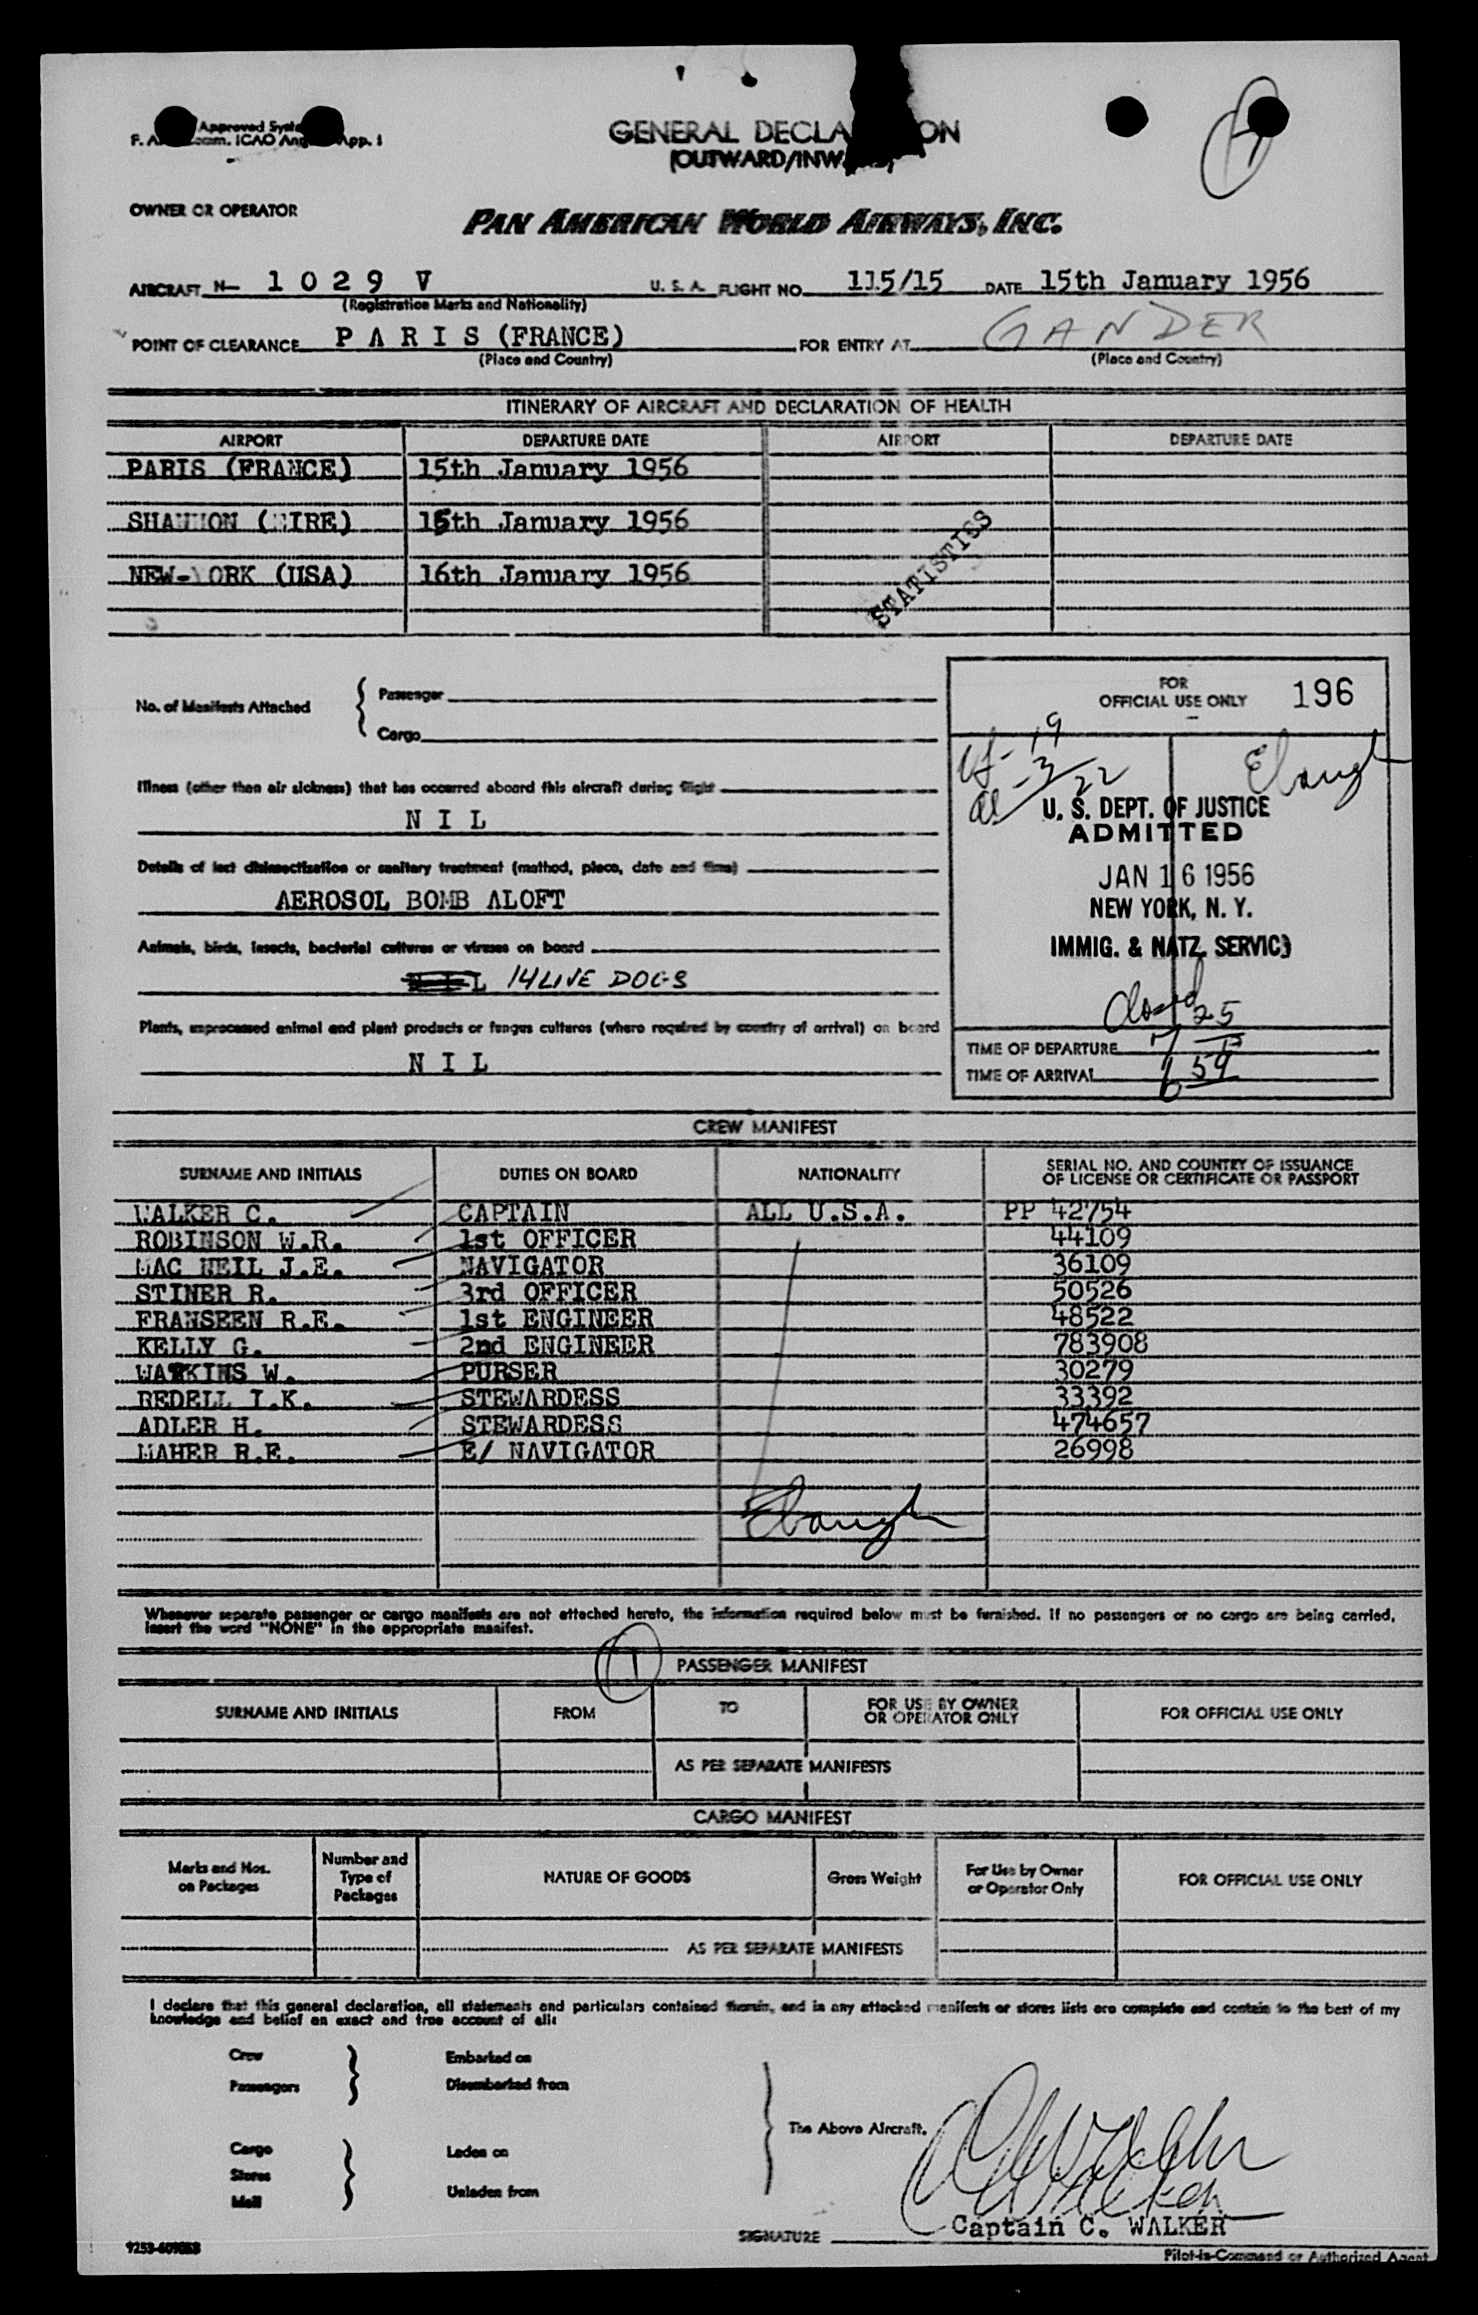 Approved
ICAO App. 1
GENERAL DECLA ON
(OUTWARD/INW
OWNER OR OPERATOR
PAN AMERICAN WORLD AIRWAYS, INC.
AIRCRAFT N- 1 0 2 9 V U. S. A. FLIGHT NO. 115/15 DATE 15th January 1956
(Registration Marks and Nationality)
POINT OF CLEARANCE P A R I S (FRANCE) FOR ENTRY AT GANDER
(Place and Country) (Place and Country)
ITINERARY OF AIRCRAFT AND DECLARATION OF HEALTH
AIRPORT DEPARTURE DATE AIRPORT DEPARTURE DATE
PARIS (FRANCE) 15th January 1956
SHANNON (EIRE) 15th January 1956
NEW-YORK (USA) 16th January 1956
STATISTICS
No. of Manifests Attached
Passenger
Cargo
FOR
OFFICIAL USE ONLY 196
19
3/22
Ebaugh
Illness (other than air sickness) that has occurred aboard this aircraft during flight
N I L
Details of last disinsectization or sanitary treatment (method, place, date and time)
AEROSOL BOMB ALOFT
Animals, birds, insects, bacterial cultures or viruses on board
14 LIVE DOGS
Plants, unprocessed animal and plant products or fungus cultures (where required by country of arrival) on board
N I L
U. S. DEPT. OF JUSTICE
ADMITTED
JAN 16 1956
NEW YORK, N. Y.
IMMIG. & NATZ. SERVICE
TIME OF DEPARTURE 7 25
TIME OF ARRIVAL 6 59
CREW MANIFEST
SURNAME AND INITIALS DUTIES ON BOARD NATIONALITY SERIAL NO. AND COUNTRY OF ISSUANCE
OF LICENSE OR CERTIFICATE OR PASSPORT
WALKER C. CAPTAIN ALL U.S.A. PP 42754
ROBINSON W.R. 1st OFFICER 44109
MAC NEIL J.E. NAVIGATOR 36109
STINER R. 3rd OFFICER 50526
FRANSEEN R.E. 1st ENGINEER 48522
KELLY G. 2nd ENGINEER 783908
WATKINS W. PURSER 30279
REDELL I.K. STEWARDESS 33392
ADLER H. STEWARDESS 474657
MAHER R.E. E/ NAVIGATOR 26998
Ebaugh
Whenever separate passenger or cargo manifests are not attached hereto, the information required below must be furnished. If no passengers or no cargo are being carried,
insert the word "NONE" in the appropriate manifest.
1 PASSENGER MANIFEST
SURNAME AND INITIALS FROM TO FOR USE BY OWNER
OR OPERATOR ONLY FOR OFFICIAL USE ONLY
AS PER SEPARATE MANIFESTS
CARGO MANIFEST
Marks and Nos.
on Packages Number and
Type of
Packages NATURE OF GOODS Gross Weight For Use by Owner
or Operator Only FOR OFFICIAL USE ONLY
AS PER SEPARATE MANIFESTS
I declare that this general declaration, all statements and particulars contained therein, and in any attached manifests or stores lists are complete and contain to the best of my
knowledge and belief an exact and true account of all:
Crew Embarked on
Passengers Disembarked from
The Above Aircraft.
Cargo Laden on
Stores
Mail Unladen from
C Walker
C Walker
SIGNATURE Captain C. WALKER
Pilot-in-Command or Authorized Agent